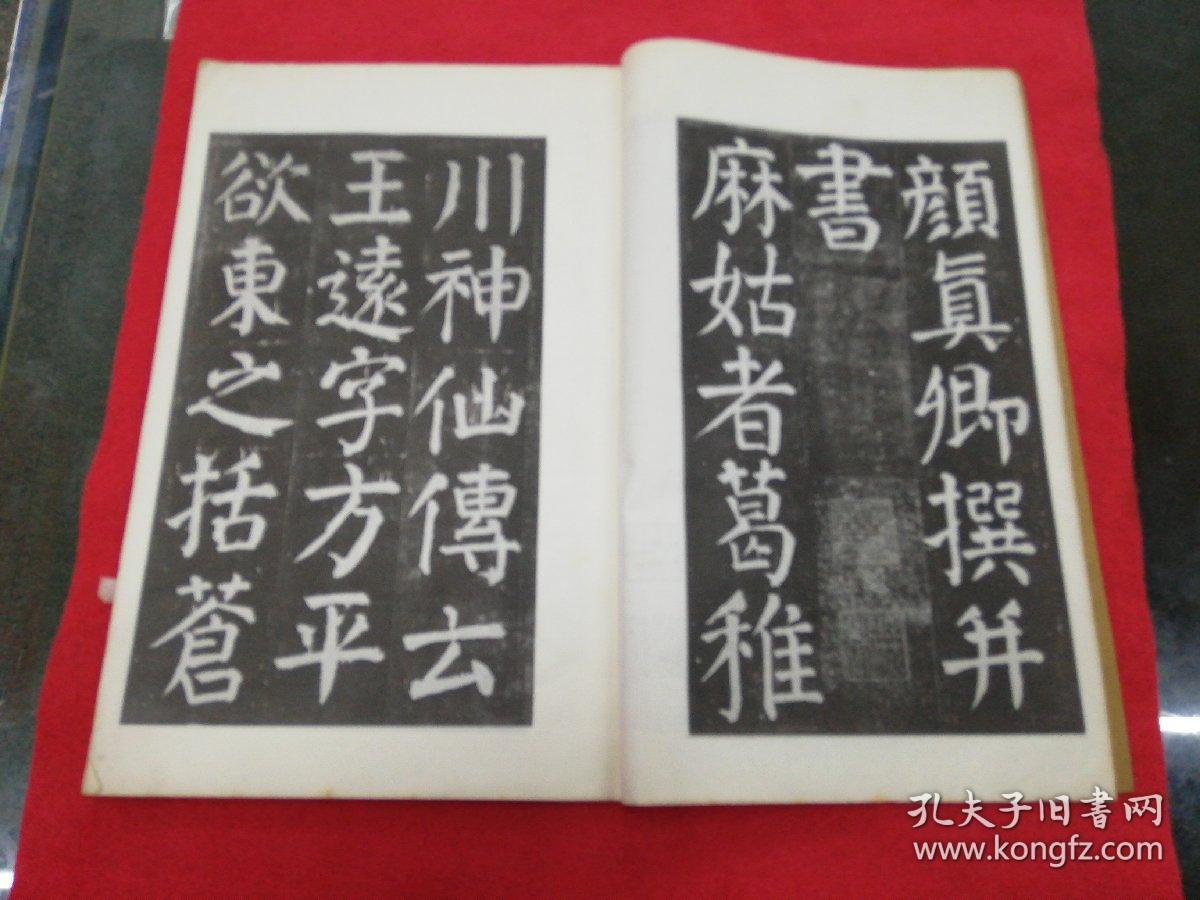 顔真卿撰并
書
麻姑者葛稚
川神仙傳云
王遠字方平
欲東之括蒼
孔夫子旧书网
www.kongfz.com